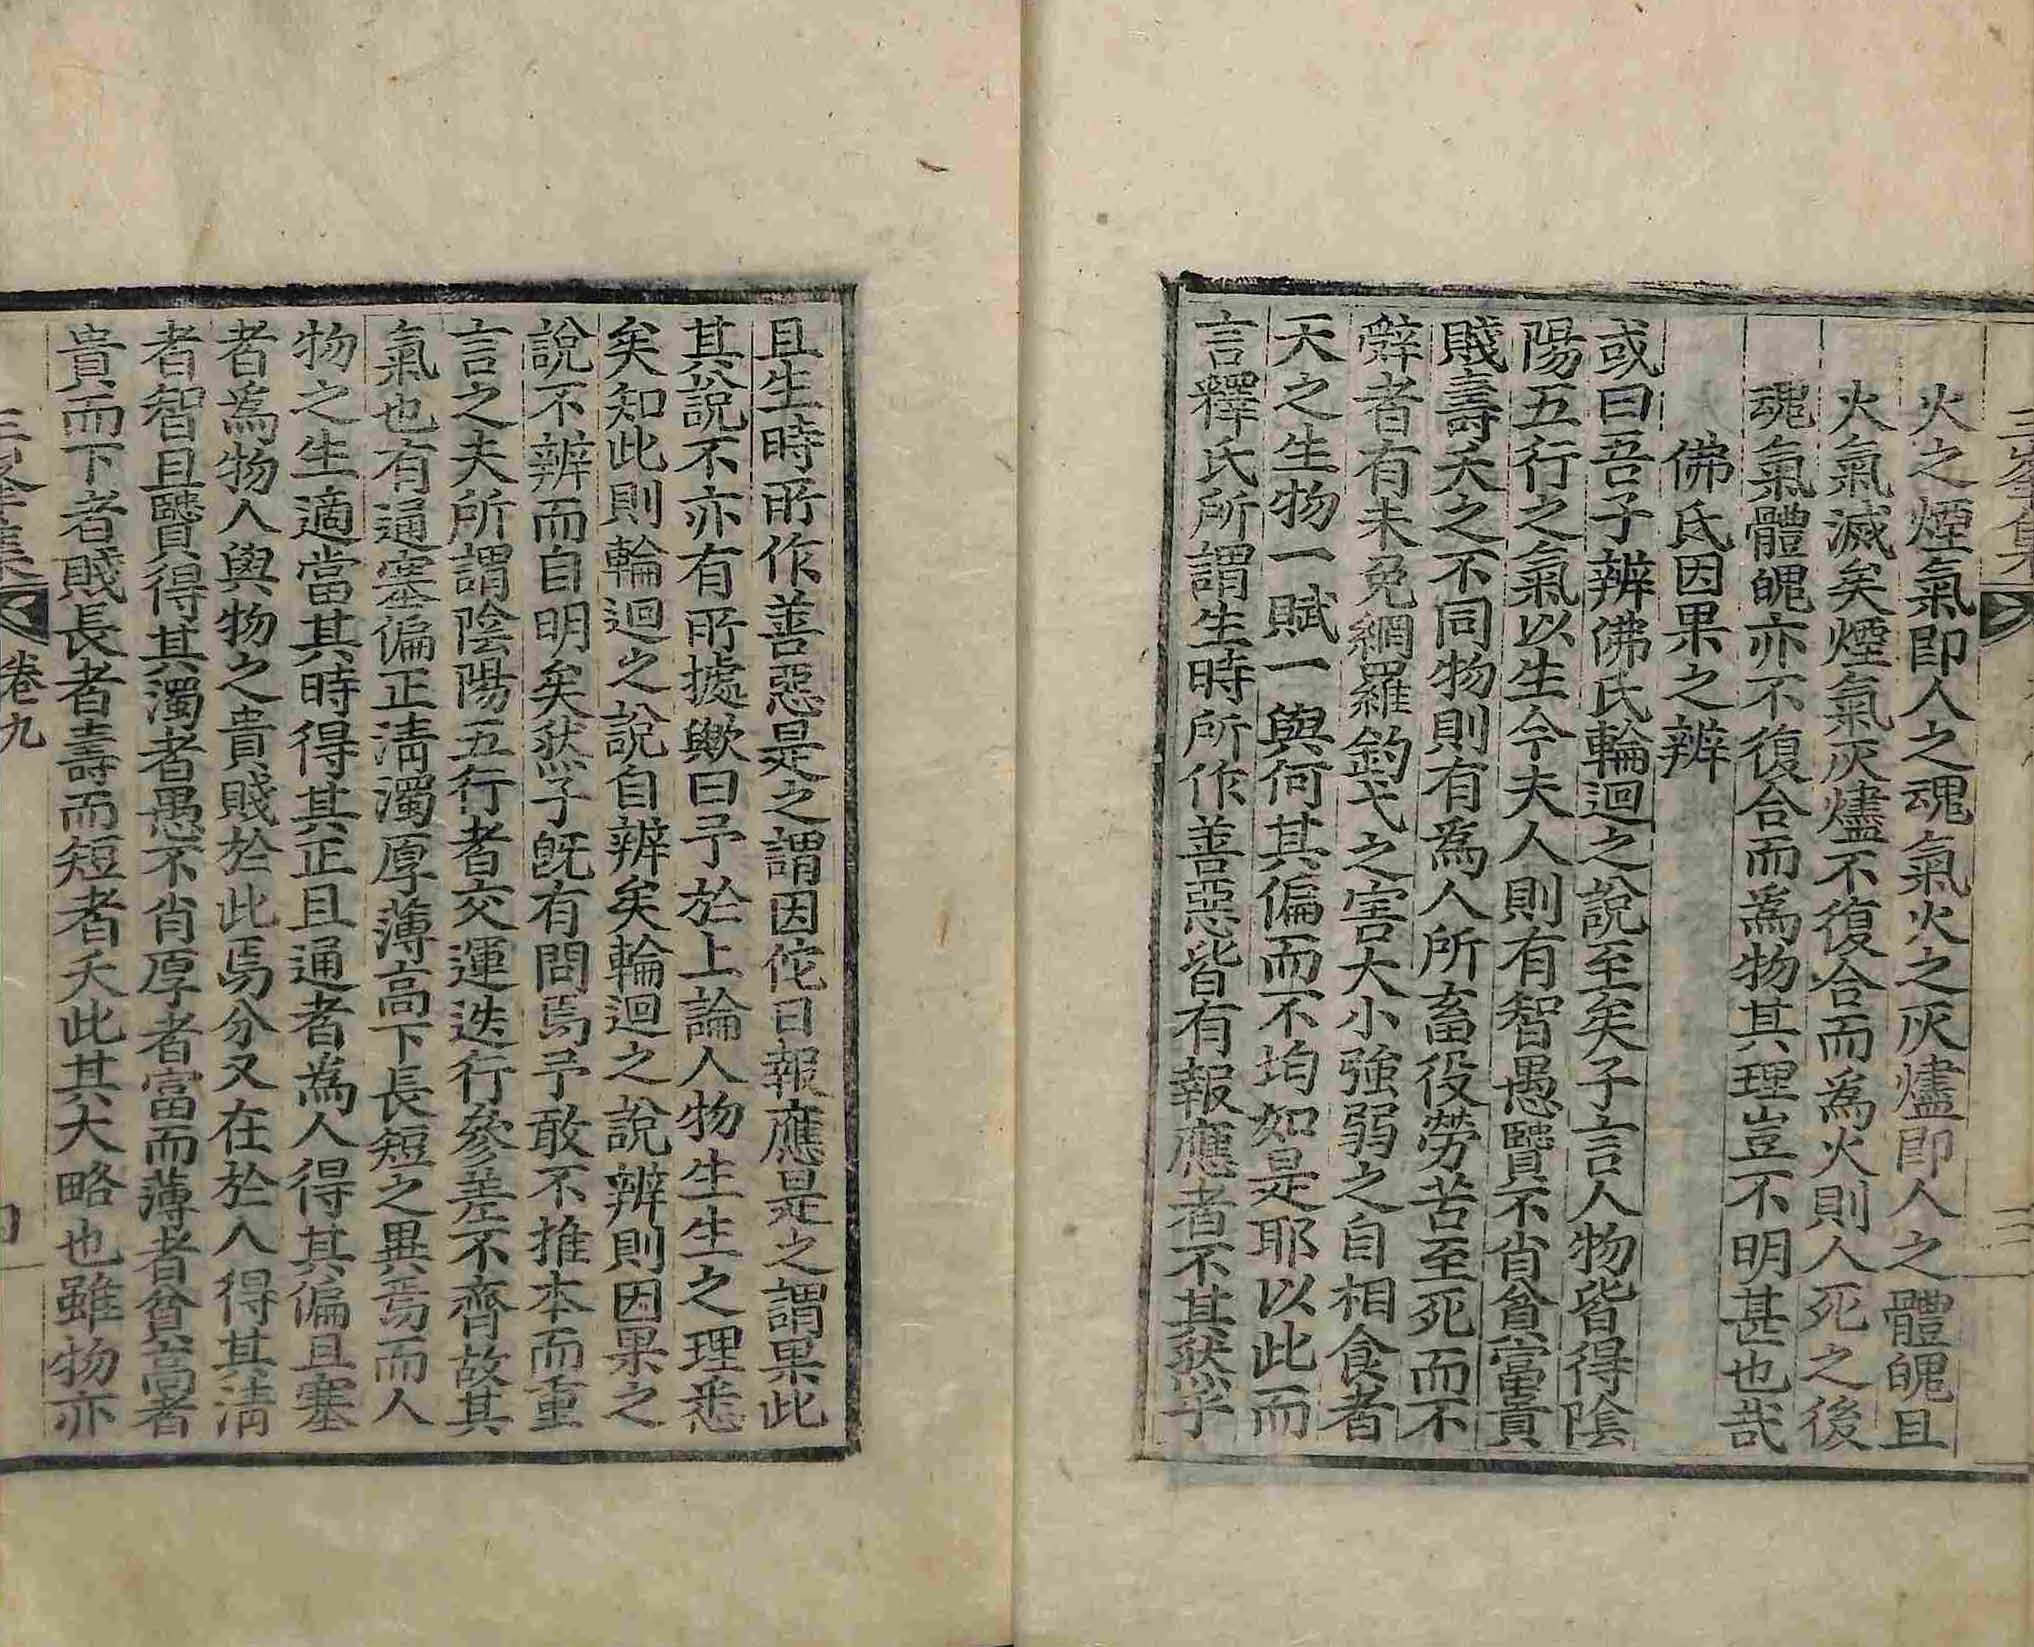 三峯集
三
火之煙氣即人之魂氣火之灰燼即人之體魄且
火氣滅矣煙氣灰燼不復合而爲火則人死之後
魂氣體魄亦不復合而爲物其理豈不明甚也哉
佛氏因果之辨
或曰吾子辨佛氏輪迴之說至矣子言人物皆得陰
陽五行之氣以生今夫人則有智愚賢不肖貧富貴
賤壽夭之不同物則有爲人所畜役勞苦至死而不
辭者有未免網羅釣弋之害大小強弱之自相食者
天之生物一賦一與何其偏而不均如是耶以此而
言釋氏所謂生時所作善惡皆有報應者不其然乎
且生時所作善惡是之謂因佗日報應是之謂果此
其說不亦有所據歟曰予於上論人物生生之理悉
矣知此則輪迴之說自辨矣輪迴之說辨則因果之
說不辨而自明矣然子旣有問焉予敢不推本而重
言之夫所謂陰陽五行者交運迭行參差不齊故其
氣也有通塞偏正淸濁厚薄高下長短之異焉而人
物之生適當其時得其正且通者爲人得其偏且塞
者爲物人與物之貴賤於此焉分又在於人得其淸
者智且賢得其濁者愚不肖厚者富而薄者貧高者
貴而下者賤長者壽而短者夭此其大略也雖物亦
三峯集 卷九